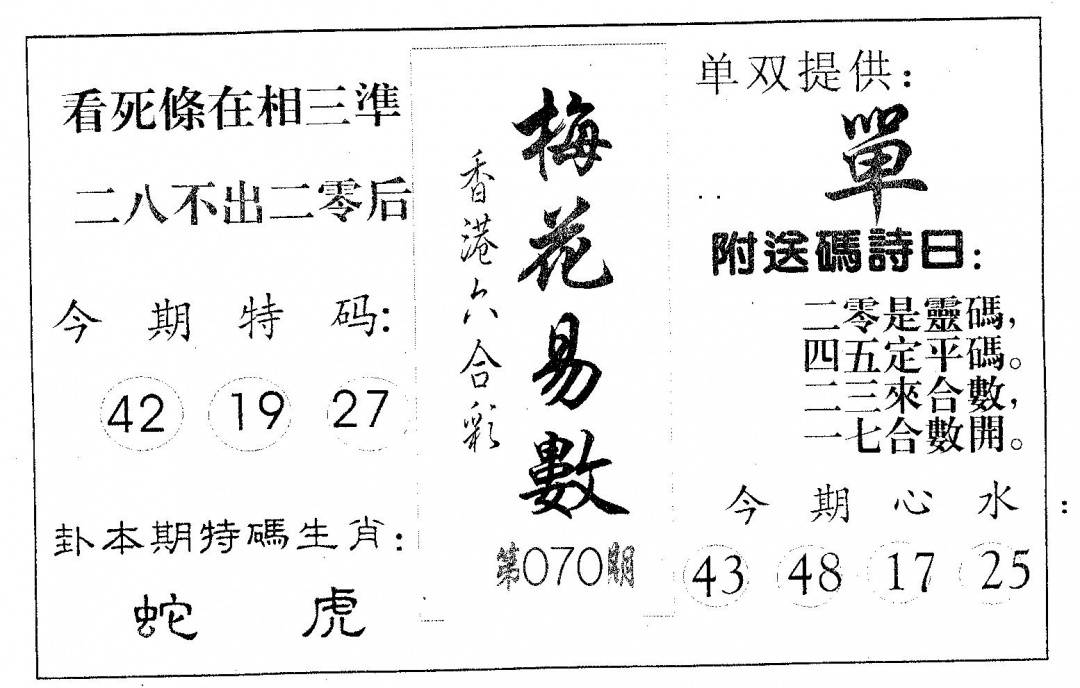 看死條在相三準
二八不出二零后
今期特码:
42 19 27
卦本期特碼生肖:
蛇 虎
香港六合彩
梅花易數
第070期
单双提供:
單
附送碼詩曰:
二零是靈碼,
四五定平碼。
二三來合數,
一七合數開。
今期心水:
43 48 17 25